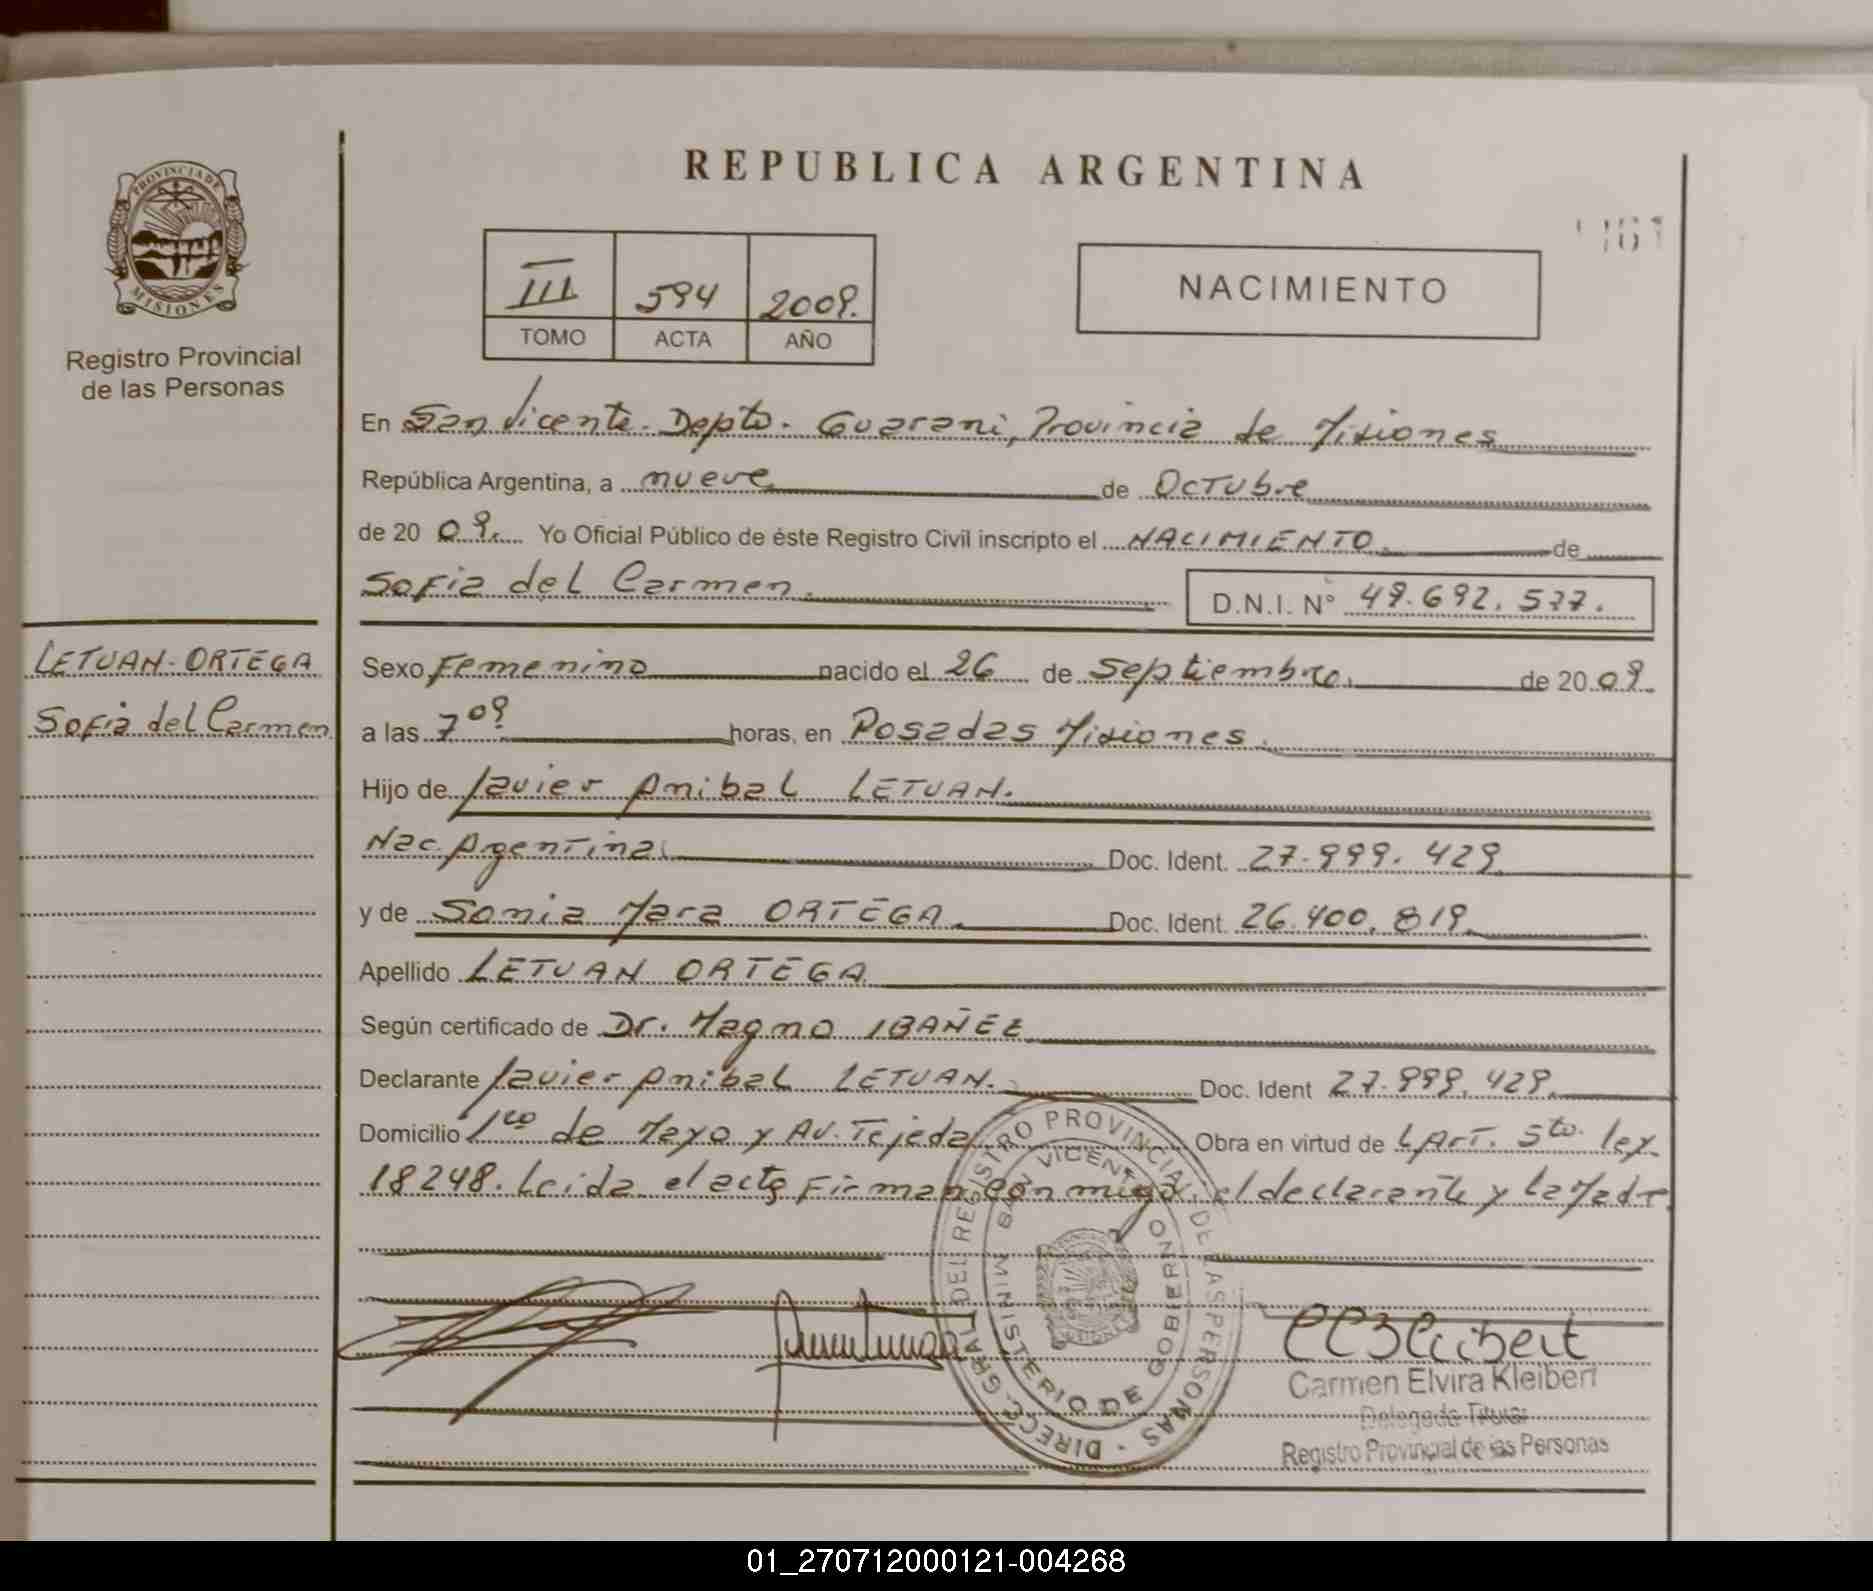 REPUBLICA ARGENTINA
PROVINCIA DE MISIONES
Registro Provincial
de las Personas
III 594 2009.
TOMO ACTA AÑO
NACIMIENTO
En San Vicente. Depto. Guarani, Provincia de Misiones
República Argentina, a nueve de Octubre
de 20 09. Yo Oficial Público de éste Registro Civil inscripto el NACIMIENTO de
Sofia del Carmen. D.N.I. Nº
LETUAN-ORTEGA
Sofia del Carmen
Sexo Femenino nacido el 26 de Septiembre. de 20 09.
a las 7 horas, en Posadas Misiones.
Hijo de Javier Anibal LETUAN.
Nac. Argentina. Doc. Ident. 27.999.429.
y de Sonia Mara ORTEGA. Doc. Ident. 26.400.819.
Apellido LETUAN ORTEGA
Según certificado de Dr. Magno IBAÑEZ
Declarante Javier Anibal LETUAN. Doc. Ident 27.999.429.
Domicilio 1ro de Mayo y Av. Tejeda Obra en virtud de Art. 5to. ley
18248. Leida el acta Firman con migo, el declarante y la Madre
DIRECC. GRAL. DEL REGISTRO PROVINCIAL DE LAS PERSONAS
SAN VICENTE
MINISTERIO DE GOBIERNO
Carmen Elvira Kleibert
Delegada Titular
Registro Provincial de las Personas
01_270712000121-004268